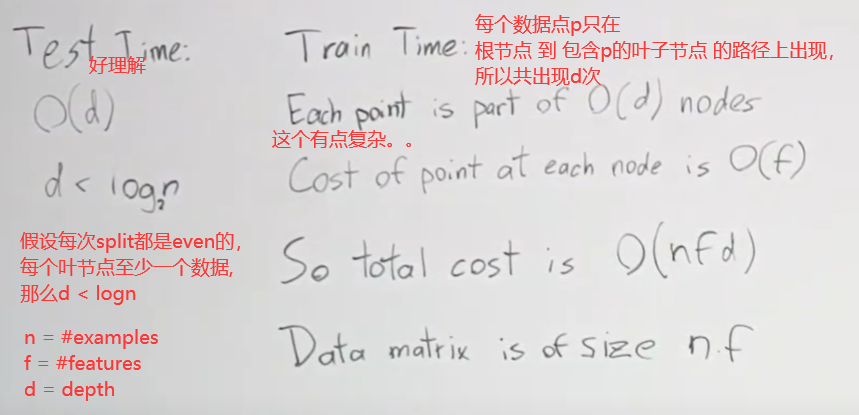 Test Time:
好理解
O(d)
d < log₂n
假设每次split都是even的，
每个叶节点至少一个数据，
那么d < logn
n = #examples
f = #features
d = depth
Train Time:
每个数据点p只在
根节点 到 包含p的叶子节点 的路径上出现，
所以共出现d次
Each point is part of O(d) nodes
这个有点复杂。。
Cost of point at each node is O(f)
So total cost is O(nfd)
Data matrix is of size n.f